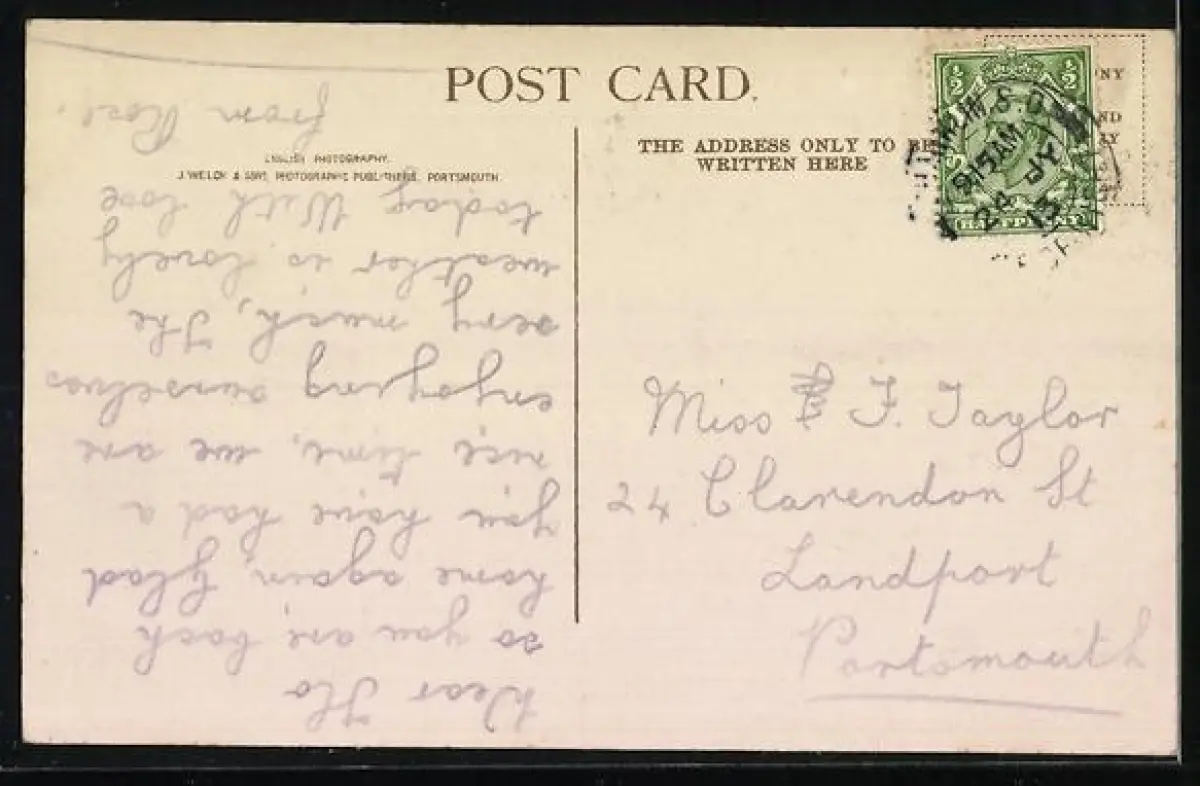 POST CARD.
ENGLISH PHOTOGRAPHY.
J. WELCH & SONS, PHOTOGRAPHIC PUBLISHERS, PORTSMOUTH
THE ADDRESS ONLY TO BE
WRITTEN HERE
½ ½
HALFPENNY
9 15 AM
24 JY
13
Miss F. Taylor
24 Clarendon St
Landport
Portsmouth
Dear Flo
so you are back
home again, Glad
you have had a
nice time, we are
enjoying ourselves
very much, The
weather is lovely
today With love
from Rose.